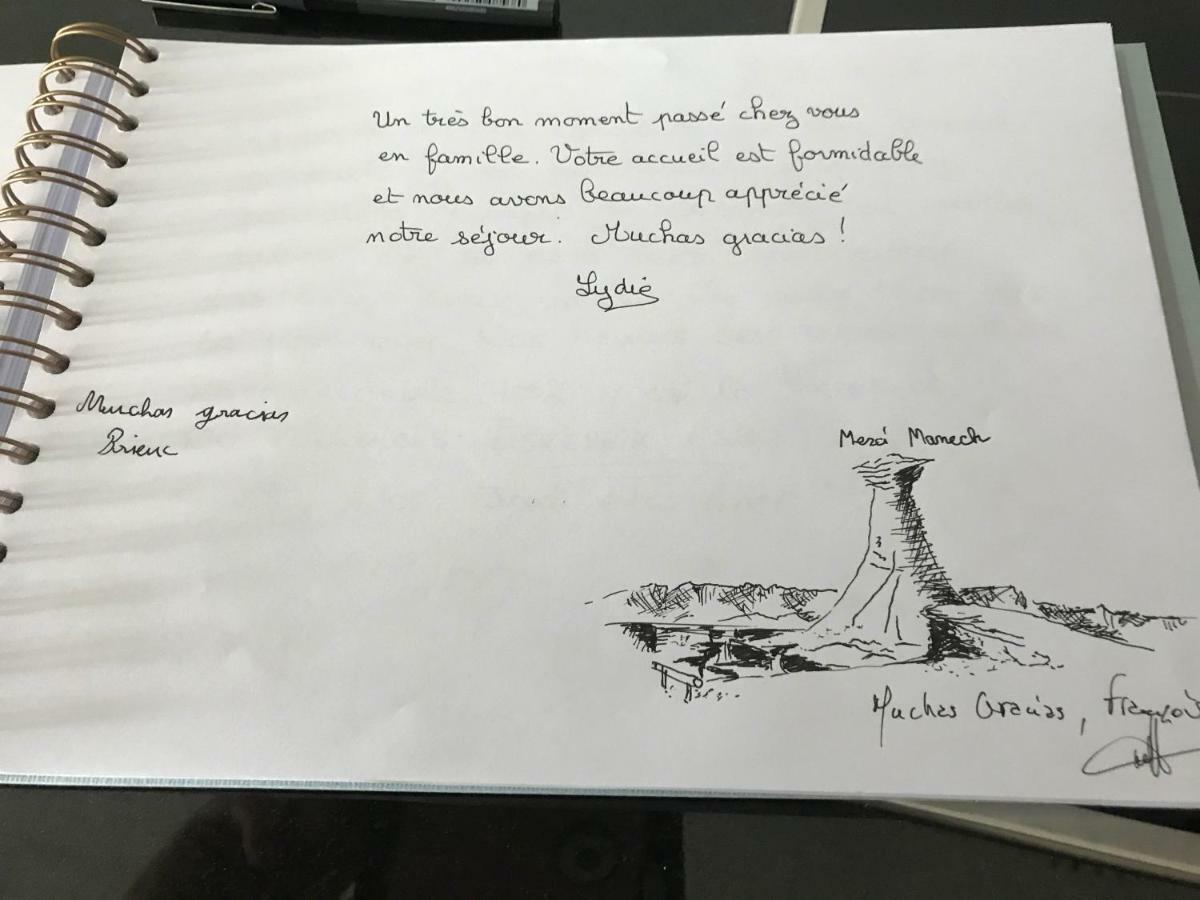 Un très bon moment passé chez vous
en famille. Votre accueil est formidable
et nous avons beaucoup apprécié
notre séjour. Muchas gracias !
Lydie
Muchas gracias
Brieuc
Merci Manech
Muchas Gracias, François